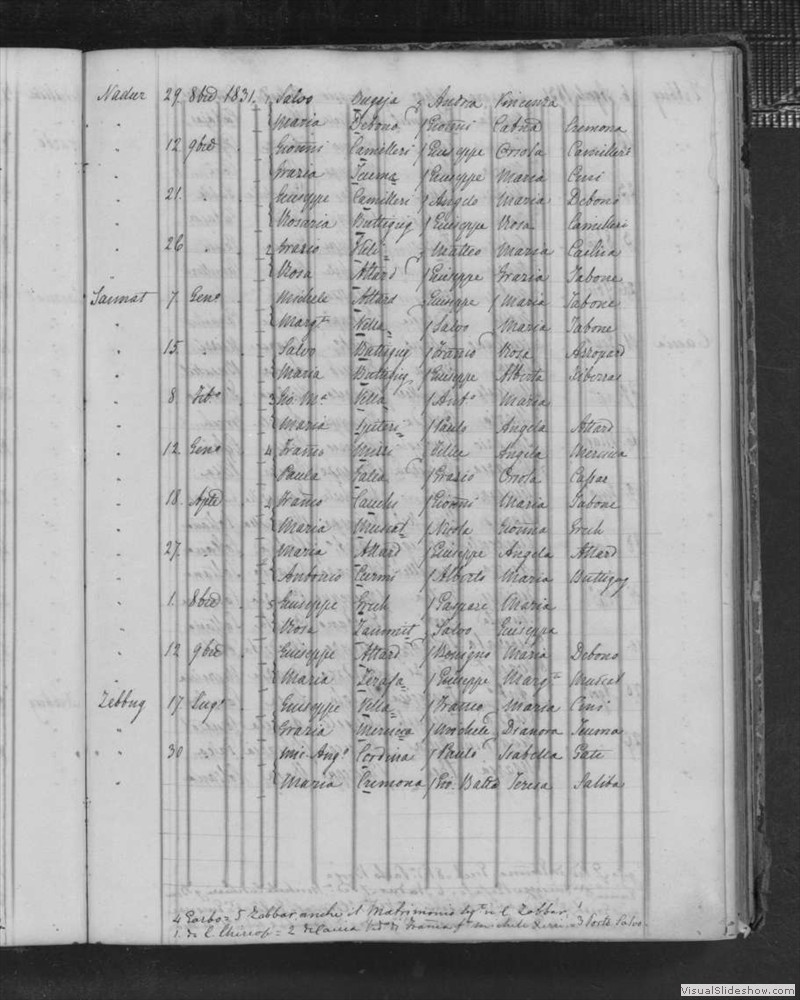 Nadur 29 8bre 1831. 1 Salvo Bugeja Andrea Vincenza
" Maria Debono Gionni Catna Cremona
" 12 9bre Gionni Camilleri Giuseppe Orsola Camilleri
" Grazia Teuma Giuseppe Maria Cini
" 21 " Giuseppe Camilleri Angelo Maria Debono
" Rosaria Buttigieg Giuseppe Rosa Camilleri
" 26 " 2 Grazio Matteo Maria
" Rosa Attard Giuseppe Grazia Tabone
Sannat 7 Geno Michele Attard Giuseppe Maria Tabone
" Margta Vella Salvo Maria Tabone
" 15 " Salvo Buttigieg Franco Rosa
" Maria Buttigieg Giuseppe Alberta
" 8 Febo 3 Gio. Ma Vella Anto Maria
" Maria Paulo Angela Attard
" 12 Geno 4 Franco Felice Angela Mercieca
" Paula Galea Grazio Orsola Caspar
" 18 Aple Franco Gionni Maria Tabone
" Maria Muscat Nicola Gionna Grech
" 27 Maria Attard Giuseppe Angela Attard
" Antonio Curmi Alberto Maria Buttigieg
" 1 8bre 5 Giuseppe Grech Gaspare Maria
" Rosa Zammit Salvo Giuseppa
" 12 9bre Giuseppe Attard Benigno Maria Debono
" Maria Giuseppe Margta Muscat
Zebbug 17 Lugo Giuseppe Vella Franco Maria Cini
" Grazia Mercieca Michele Dianora Teuma
" 30 Mic. Ango Cordina Paulo Isabella
" Maria Cremona Gio. Batta Teresa Saliba
4 Garbo = 5 Zabbar, anche il Matrimonio il Zabbar
1. di = 2 di Franca 3 Porto Salvo
VisualSlideshow.com